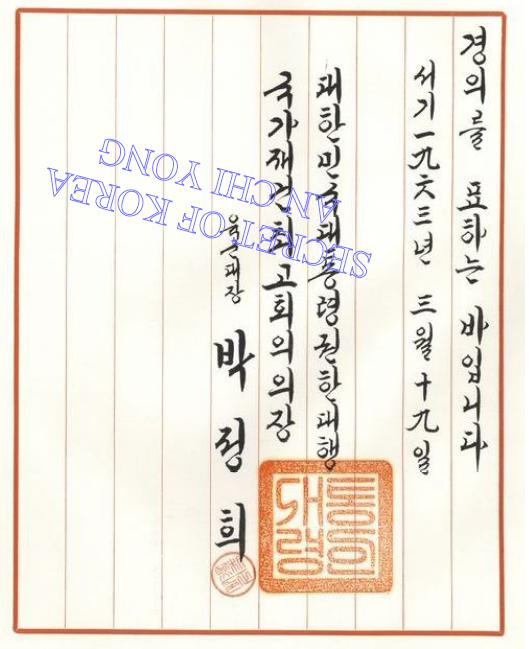 경의를 표하는 바입니다
서기 一九六三년 三월 十九일
대한민국대통령권한대행
국가재건최고회의의장
육군대장 박정희
대통령인
SECRET OF KOREA
AN CHI YONG